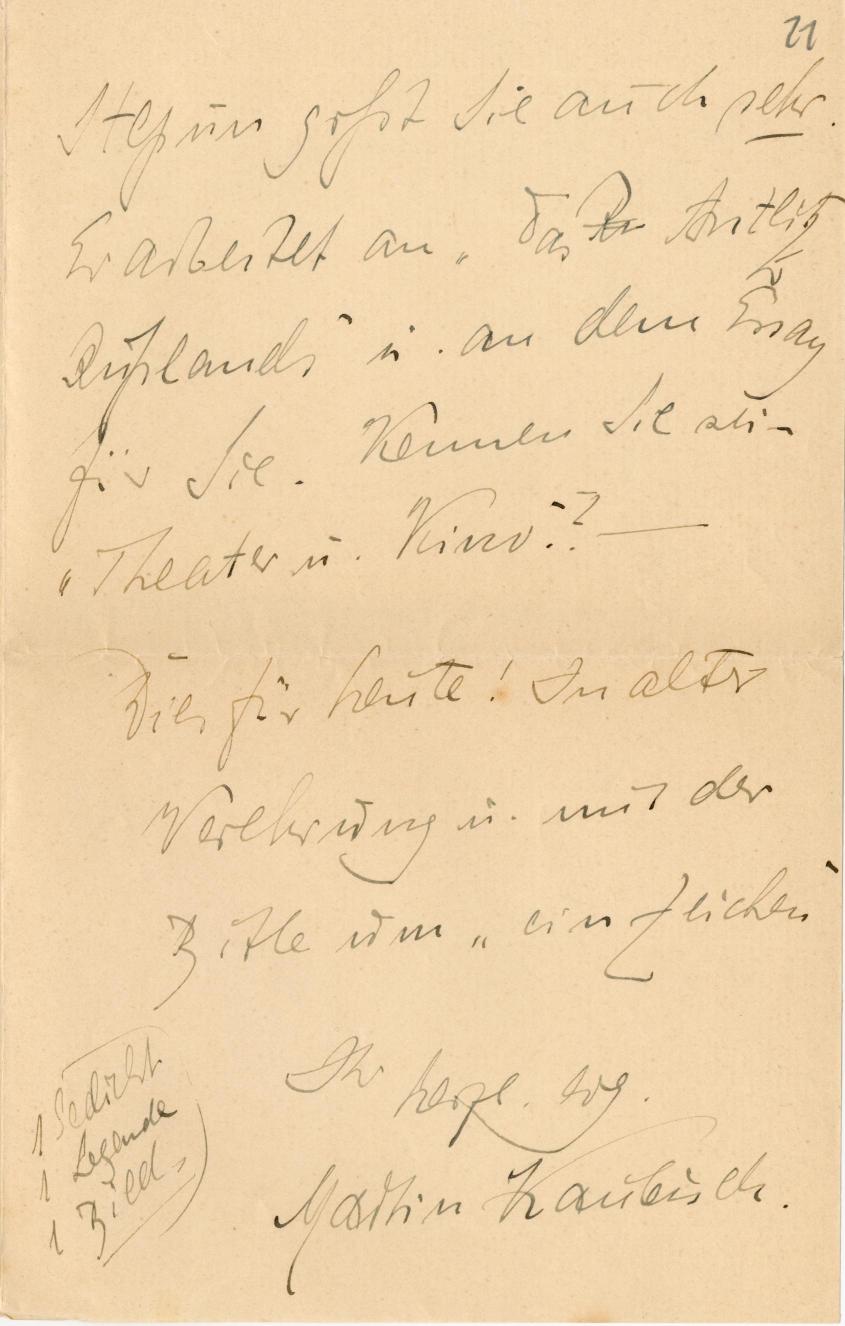 21
Stepun grüßt Sie auch sehr.
Er arbeitet an „Das Antlitz
Rußlands" u. an dem Essay
für Sie. Kennen Sie sein
„Theater u. Kino"? —
Dies für heute! In alter
Verehrung u. mit der
Bitte um „ein Zeichen"
Ihr herzl. erg.
Martin Kaubisch.
1 Gedicht
1 Legende
1 Bild.